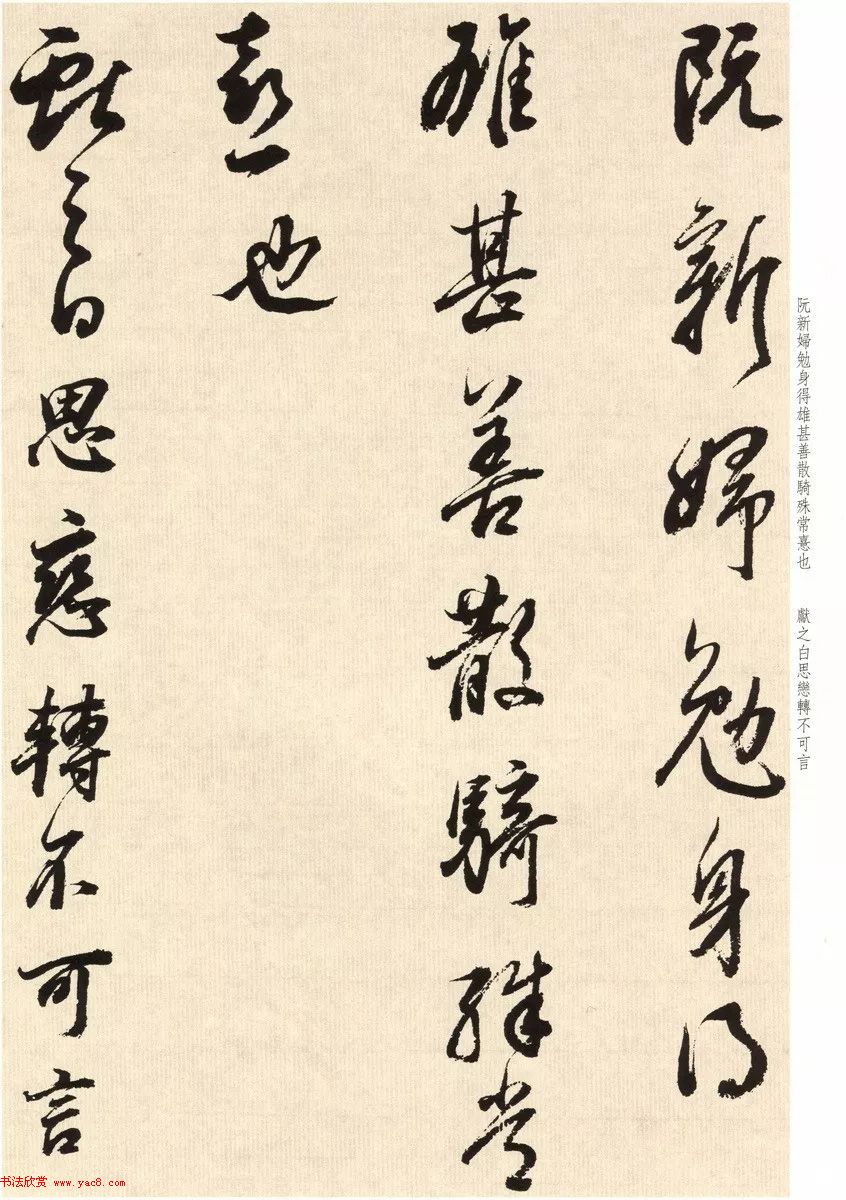 阮新婦勉身得
雄甚善散騎殊常
憙也
獻之白思戀轉不可言
阮新婦勉身得雄甚善散騎殊常憙也 獻之白思戀轉不可言
书法欣赏 www.yac8.com